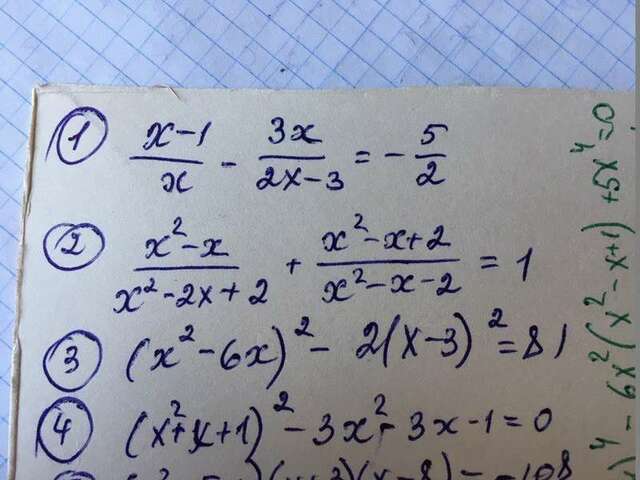 ① (x-1)/x - 3x/(2x-3) = -5/2
② (x²-x)/(x²-2x+2) + (x²-x+2)/(x²-x-2) = 1
③ (x²-6x)² - 2(x-3)² = 81
④ (x²+x+1)² - 3x² - 3x - 1 = 0
(x-8) = -108
⁴ - 6x²(x²-x+1) + 5x⁴ = 0